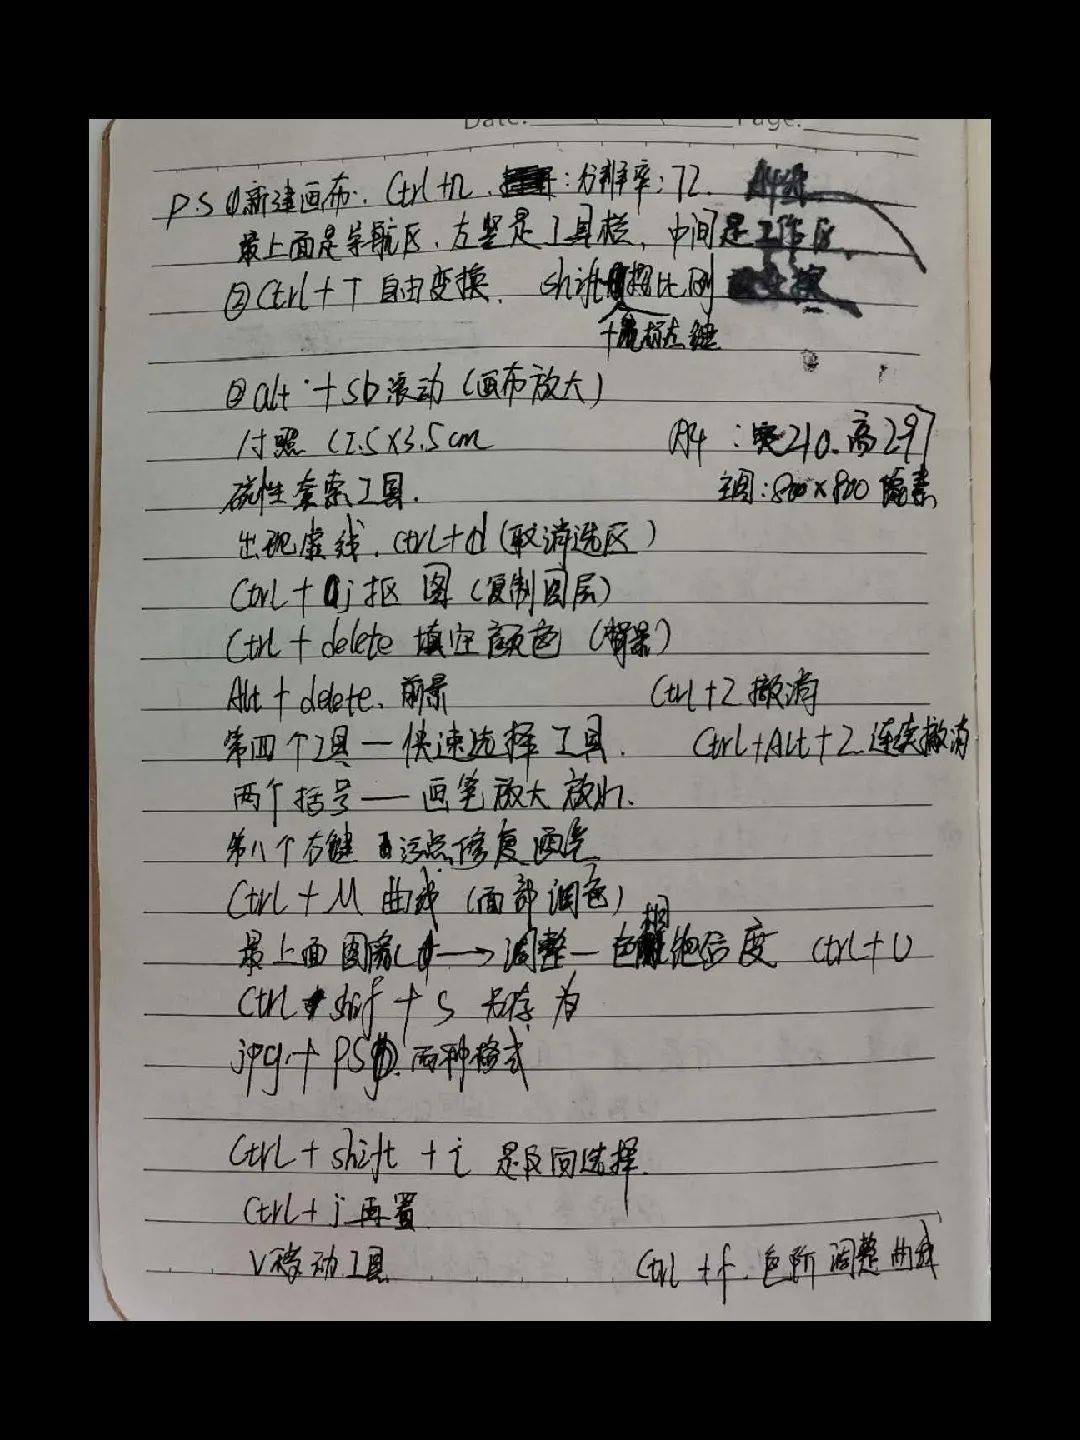 Date: Page:
P.S ①新建画布. Ctrl+n. : 分辨率: 72.
最上面是导航区, 左竖是工具栏, 中间是工作区
②Ctrl+T 自由变换. shift 按比例
+鼠标左键
③alt + 滚动 (画布放大)
1寸照 (2.5×3.5cm
A4 : 宽210. 高297
磁性套索工具.
主图: 800×800 像素
出现虚线. Ctrl+d (取消选区)
Ctrl+j 抠图 (复制图层)
Ctrl+delete 填空颜色 (背景)
Alt+delete. 前景
Ctrl+Z 撤消
第四个工具 — 快速选择工具.
Ctrl+Alt+Z. 连续撤消
两个括号 — 画笔放大放小.
第八个右键 污点修复画笔
Ctrl+M 曲线 (面部调色)
最上面图像 → 调整 — 色相饱和度 Ctrl+U
Ctrl shif + S 另存为
jpg + PSD. 两种格式
Ctrl+shift+i 是反向选择.
Ctrl+j 再置
V移动工具
Ctrl+f. 色阶调整曲线